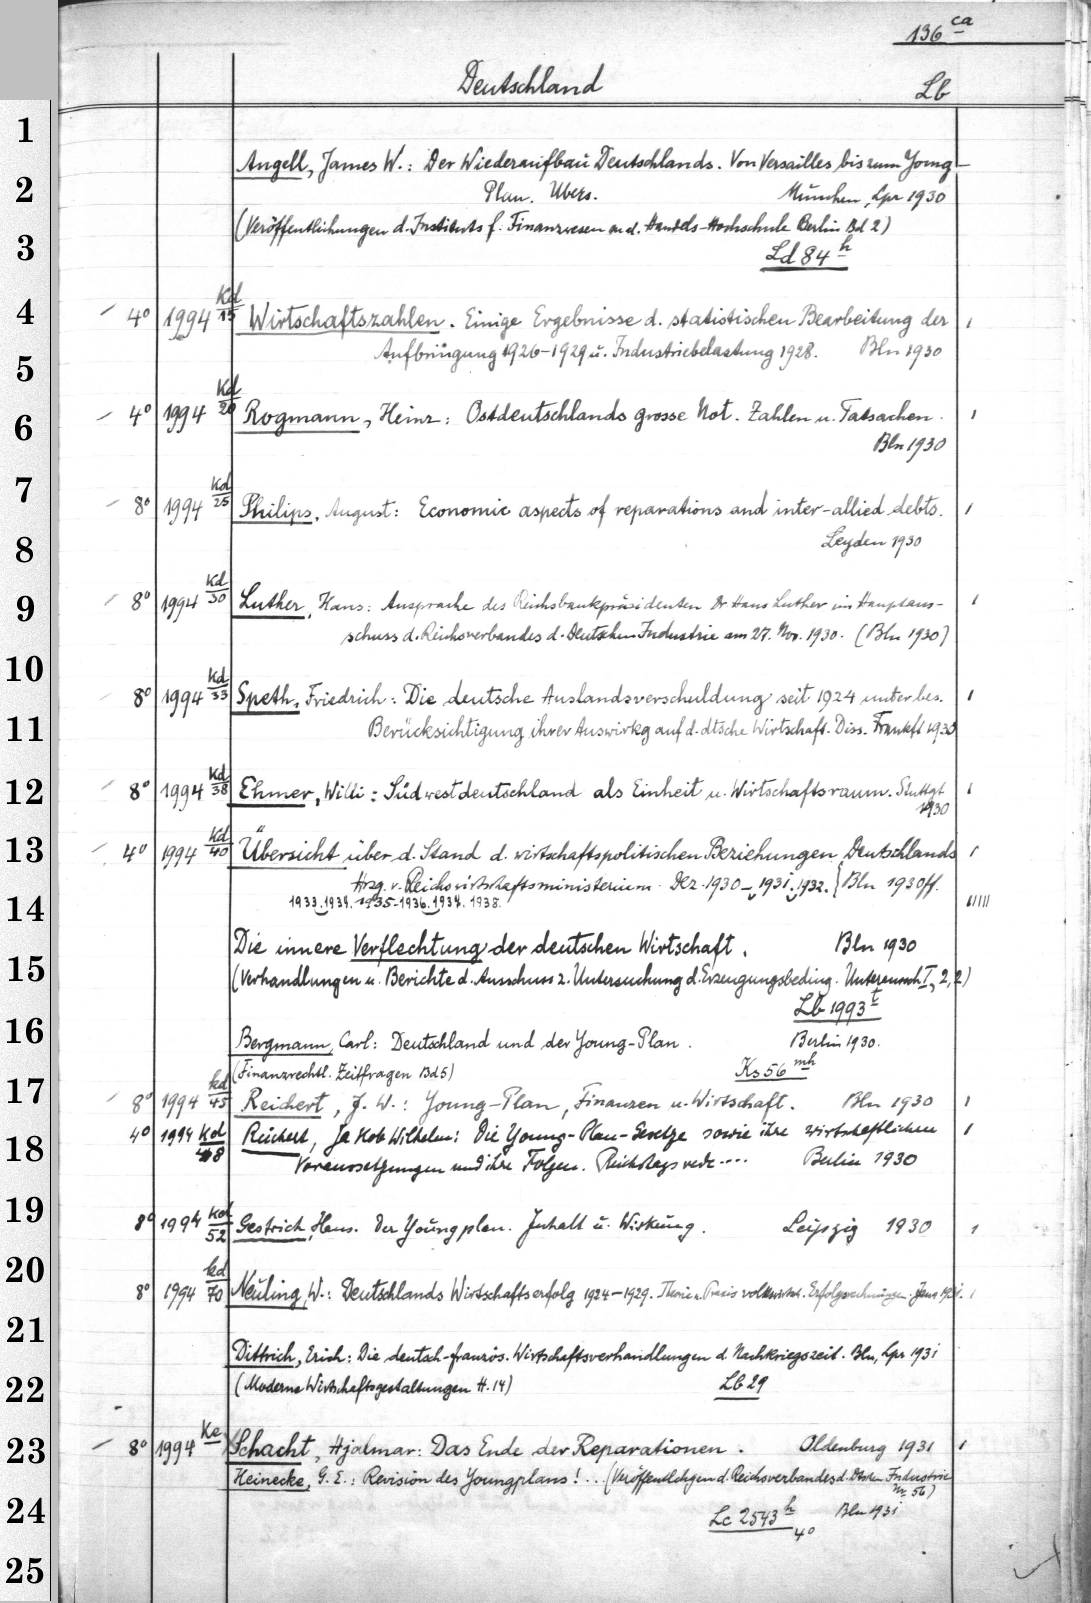 136 ca
Deutschland Lb
1
Angell, James W.: Der Wiederaufbau Deutschlands. Von Versailles bis zum Young-
2
Plan. Übers. München, Lpz 1930
(Veröffentlichungen d. Instituts f. Finanzwesen an d. Handels-Hochschule Berlin Bd 2)
3
Ld 84 h
4
4° 1994 Kd/15 Wirtschaftszahlen. Einige Ergebnisse d. statistischen Bearbeitung der
Aufbringung 1926-1929 u. Industriebelastung 1928. Bln 1930
5
4° 1994 Kd/20 Rogmann, Heinz: Ostdeutschlands grosse Not. Zahlen u. Tatsachen.
6
Bln 1930
7
8° 1994 Kd/25 Philips, August: Economic aspects of reparations and inter-allied debts.
8
Leyden 1930
9
8° 1994 Kd/30 Luther, Hans: Ansprache des Reichsbankpräsidenten Dr Hans Luther im Hauptaus-
schuss d. Reichsverbandes d. Deutschen Industrie am 27. Nov. 1930. (Bln 1930)
10
8° 1994 Kd/33 Speth, Friedrich: Die deutsche Auslandsverschuldung seit 1924 unter bes.
11
Berücksichtigung ihrer Auswirkg auf d. dtsche Wirtschaft. Diss. Frankft 1930
12
8° 1994 Kd/38 Ehmer, Willi: Südwestdeutschland als Einheit u. Wirtschaftsraum. Stuttgt
1930
13
4° 1994 Kd/40 Übersicht über d. Stand d. wirtschaftspolitischen Beziehungen Deutschlands
Hrsg. v. Reichswirtschaftsministerium. Dez. 1930-1931. 1932. Bln 1930ff.
14
1933. 1934. 1935-1936. 1937. 1938.
Die innere Verflechtung der deutschen Wirtschaft. Bln 1930
15
(Verhandlungen u. Berichte d. Ausschuss z. Untersuchung d. Erzeugungsbeding. Unteraussch I, 2, 2)
Lb 1993 t
16
Bergmann, Carl: Deutschland und der Young-Plan. Berlin 1930.
(Finanzrechtl. Zeitfragen Bd 5) Ks 56 mh
17
8° 1994 kd/45 Reichert, J. W.: Young-Plan, Finanzen u. Wirtschaft. Bln 1930
18
4° 1994 Kd/48 Reichert, Jakob Wilhelm: Die Young-Plan-Gesetze sowie ihre wirtschaftlichen
Voraussetzungen und ihre Folgen. Reichstagsrede.... Berlin 1930
19
8° 1994 Kd/52 Gestrich, Hans. Der Youngplan. Inhalt u. Wirkung. Leipzig 1930
20
8° 1994 kd/70 Neuling, W.: Deutschlands Wirtschaftserfolg 1924-1929. Theorie u. Praxis volkswirtsch. Erfolgsrechnungen. Jena 1931.
21
Dittrich, Erich: Die deutsch-französ. Wirtschaftsverhandlungen d. Nachkriegszeit. Bln, Lpz 1931
22
(Moderne Wirtschaftsgestaltungen H. 14) Lb 29
23
8° 1994 Ke Schacht, Hjalmar: Das Ende der Reparationen. Oldenburg 1931
Heinecke, G. E.: Revision des Youngplans!... (Veröffentlchgen d. Reichsverbandes d. Dtschen Industrie
Nr. 56)
24
Lc 2543 h 4° Bln 1931
25